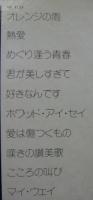 オレンジの雨
熱愛
めぐり逢う青春
君が美しすぎて
好きなんです
ホワッド・アイ・セイ
愛は傷つくもの
嘆きの讃美歌
こころの叫び
マイ・ウェイ